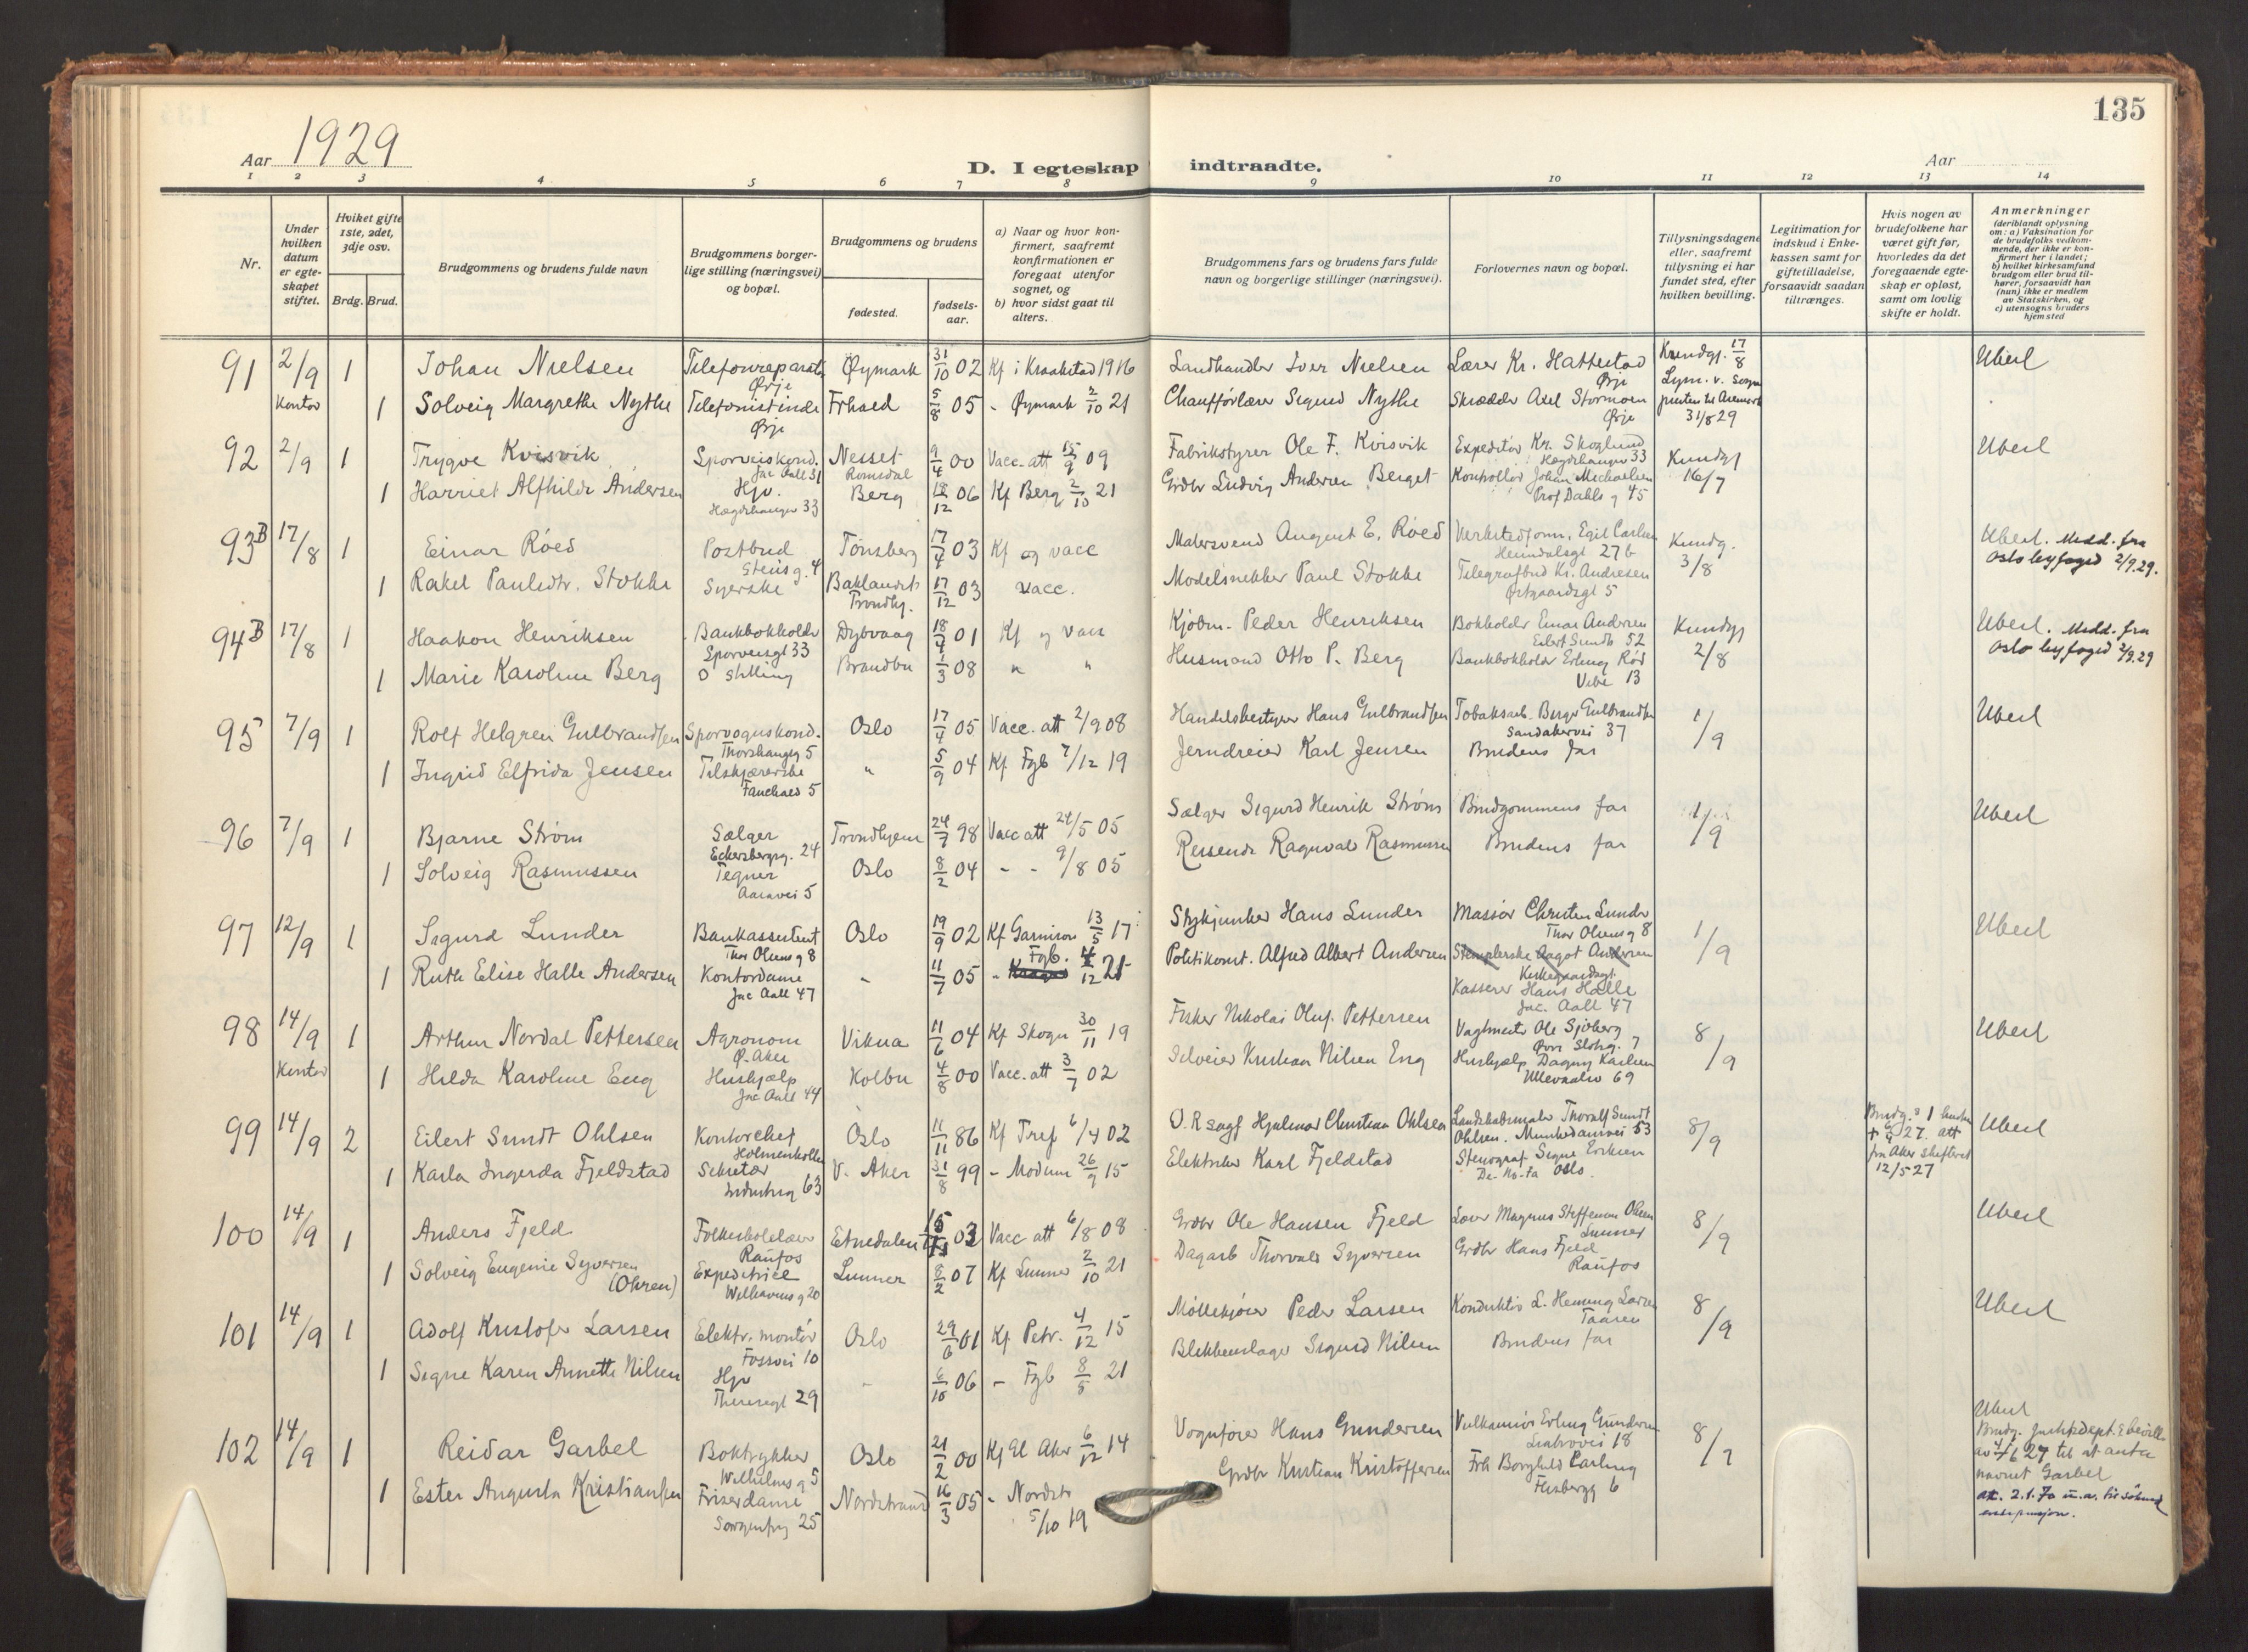 135
Aar 1929
D. I egteskap indtraadte.
Aar
1 2 3 4 5 6 7 8 9 10 11 12 13 14
Nr.
Under hvilken datum er egteskapet stiftet.
Hviket gifte 1ste, 2det, 3dje osv.
Brdg. Brud.
Brudgommens og brudens fulde navn
Brudgommens borgerlige stilling (næringsvei) og bopæl.
Brudgommens og brudens
fødested.
fødselsaar.
a) Naar og hvor konfirmert, saafremt konfirmationen er foregaat utenfor sognet, og
b) hvor sidst gaat til alters.
Brudgommens fars og brudens fars fulde navn og borgerlige stillinger (næringsvei).
Forlovernes navn og bopæl.
Tillysningsdagene eller, saafremt tillysning ei har fundet sted, efter hvilken bevilling.
Legitimation for indskud i Enkekassen samt for giftetilladelse, forsaavidt saadan tiltrænges.
Hvis nogen av brudefolkene har været gift før, hvorledes da det foregaaende egteskap er opløst, samt om lovlig skifte er holdt.
Anmerkninger (deriblandt oplysning om: a) Vaksination for de brudefolks vedkommende, der ikke er konfirmert her i landet; b) hvilket kirkesamfund brudgom eller brud tilhører, forsaavidt han (hun) ikke er medlem av Statskirken, og c) utensogns bruders hjemsted
91 2/9 1 Johan Nielsen Øymark 31/10 02 Kf i Kraakstad 1916 Landhandler Iver Nielsen Lærer Kr. Hattestad Ørje 17/8 Ubesl
Kontor 1 Solveig Margrethe Nythe Telefonistinde Ørje Frhald 5/8 05 - Øymark 2/10 21 Chaufförlærer Sigurd Nythe Skrædder Axel Stormoen Ørje 31/8 29
92 2/9 1 Trygve Kvisvik Sporveiskond. Jac Aall 31 Nesset Romsdal 9/4 00 Vacc. att 15/9 09 Fabrikstyrer Ole F. Kvisvik Expeditør Kr. Skoglund Hægdehaugen 33 Kundgj 16/7 Ubesl
1 Harriet Alfhilde Andersen Hjv. Hægdehaugen 33 Berg 18/12 06 Kf Berg 2/10 21 Grdbr Ludvig Andersen Berget Kontrollør Johan Michaelsen Prof Dahls g 45
93B 17/8 1 Einar Röed Postbud Stensg. 4 Tönsberg 03 Kf og vacc Malersvend August E. Röed Verkstedform. Egil Carlsen Heimdalsgt 27 b Kundg. 3/8 Ubesl. Medd. fra Oslo byfoged 2/9.29.
1 Rakel Paulsdtr. Stokke Syerske Baklandet Trondhj. 17/12 03 Vacc. Modelsnekker Paul Stokke Telegrafbud Kr. Andresen Østgaardsgt 5
94B 17/8 1 Haakon Henriksen Bankbokholder Sporveisgt 33 Dybvaag 18/4 01 Kf og vacc Kjøbm. Peder Henriksen Bokholder Einar Andersen Eilert Sundts 52 Kundgj 2/8 Ubesl. Medd. fra Oslo byfoged 2/9.29
1 Marie Karoline Berg O stilling Brandbu 1/3 08 " " Husmand Otto P. Berg Bankbokholder Erling Röd Vibe 13
95 7/9 1 Rolf Helgren Gulbrandsen Sporvognskond. Thorshaugg 5 Oslo 17/4 05 Vacc. att 2/9 08 Handelsbestyrer Hans Gulbrandsen Tobaksarb. Birger Gulbrandsen Sandakervei 37 1/9 Ubesl
1 Ingrid Elfrida Jensen Tilskjærerske Fauchalds 5 " 5/9 04 Kf Fgb 7/12 19 Jerndreier Karl Jensen Brudens far
96 7/9 1 Bjarne Ström Sælger Eckersbergsg. 24 Trondhjem 24/7 98 Vacc att 24/5 05 Sælger Sigurd Henrik Ström Brudgommens far 1/9 Ubesl
1 Solveig Rasmussen Tegner 5 Oslo 8/2 04 - - 9/8 05 Reisende Ragnvald Rasmussen Brudens far
97 12/9 1 Sigurd Lunder Bankassistent Thor Olsens g 8 Oslo 19/9 02 Kf Garnison 13/5 17 Stykjunker Hans Lunder Massör Christen Lunder Thor Olsens g 8 1/9 Ubesl
1 Ruth Elise Halle Andersen Kontordame Jac Aall 47 - 11/7 05 - Fgb. 4/12 21 Politikonst. Alfred Albert Andersen Stemplerske Aagot Andersen Kirkegaardsgt Kasserer Hans Halle Jac. Aall 47
98 14/9 1 Arthur Nordal Pettersen Agronom Ø. Aker Vikna 11/6 04 Kf Skogn 30/11 19 Fisker Nikolai Oluf Pettersen Vagtmester Ole Sjöberg Övre Slotsg. 7 8/9 Ubesl
Kontor 1 Hilda Karoline Eng Hushjælp Jac Aall 44 Kolbu 4/8 00 Vacc. att 3/7 02 Selveier Kristian Nilsen Eng Hushjælp Dagny Karlsen Ullevaalsv 69
99 14/9 2 Eilert Sundt Ohlsen Kontorchef Holmenkollen Oslo 11/11 86 Kf Tref 6/4 02 O.R.sagf Hjalmar Christian Ohlsen Landskabsmaler Thoralf Sundt Ohlsen. Munkedamsvei 53 8/9 Brudg.s 1 hustru + 6/4 27. att fra Aker skifteret 12/5 27 Ubesl
1 Karla Ingerda Fjeldstad Sekretær Industrig 63 V. Aker 31/8 99 - Modum 26/9 15 Elektriker Karl Fjeldstad Stenograf Signe Eriksen De-No-Fa Oslo.
100 14/9 1 Anders Fjeld Folkeskolelærer Raufos Etnedalen 03 Vacc att 6/8 08 Grdbr Ole Hansen Fjeld Lærer Magnus Steffensen Ohren Lunner 8/9 Ubesl
1 Solveig Eugenie Syversen (Ohren) Expeditrice Welhavens g 20 Lunner 8/2 07 Kf Lunner 2/10 21 Dagarb Thorvald Syversen Grdbr Hans Fjeld Raufos
101 14/9 1 Adolf Kristofer Larsen Elektr. montör Fossvei 10 Oslo 29/6 01 Kf Petr. 4/12 15 Möllekjörer Peder Larsen Konduktör L. Henning Larsen Taasen 8/9 Ubesl
1 Signe Karen Annette Nilsen Hjv Theresegt 29 - 6/10 06 - Fgb 8/5 21 Blikkenslager Sigurd Nilsen Brudens far
102 14/9 1 Reidar Garbel Boktrykker Wilhelms g 5 Oslo 21/2 00 Kf El Aker 6/12 14 Vognfører Hans Gundersen Erling Gundersen 18 8/7 Ubesl Brudg. Justisdept. bevill. av 4/6 27 til at anta navnet Garbel
1 Ester Augusta Kristiansen Friserdame Sorgenfrig 25 Nordstrand 16/3 05 - Nordstr 5/10 19 Grdbr Kristian Kristoffersen Frk Borghild 6